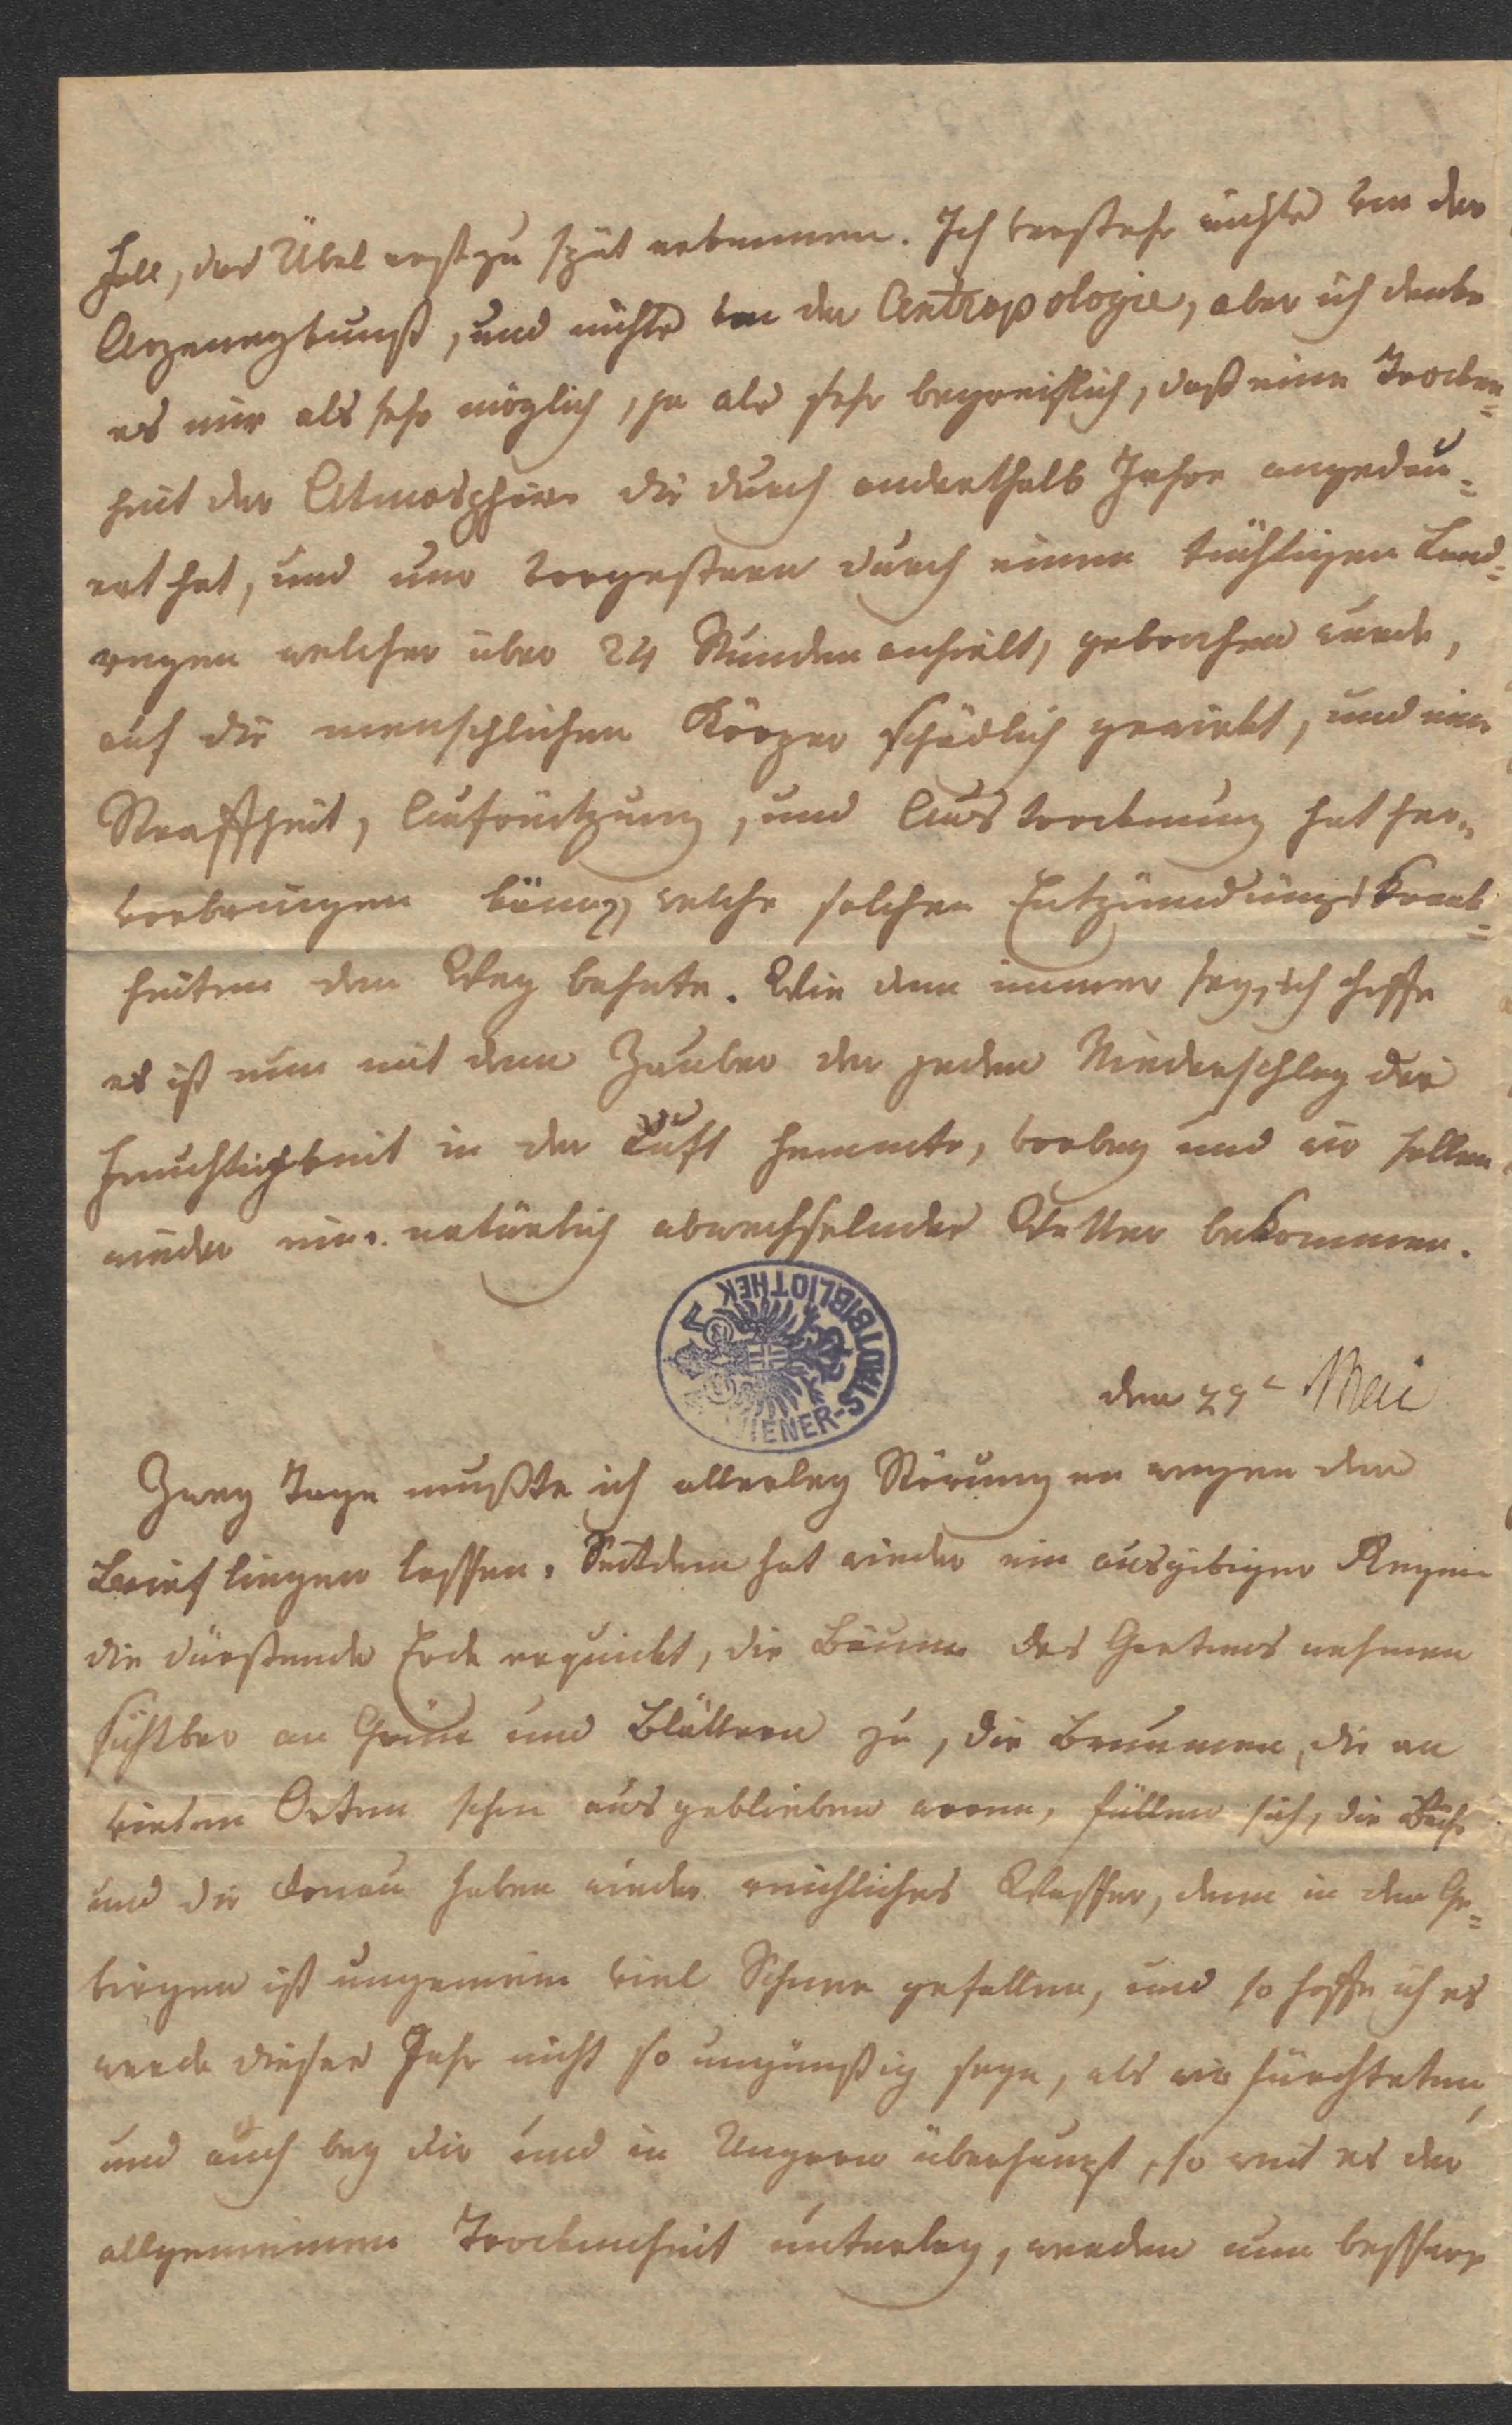 Fall, das Übel erst zu spät erkennen. Ich verstehe nichts von der
Arzeneykunst, und nichts von der Antropologie, aber ich denke
es mir als sehr möglich, ja als sehr begreiflich, daß eine Trocken=
heit der Atmosphäre die durch anderthalb Jahre angedau=
ert hat, und nur vorgestern durch einen tüchtigen Land=
regen welcher über 24 Stunden anhielt, gebrochen wurde,
auf die menschlichen Körper schädlich gewirkt, und eine
Straffheit, Aufreitzung, und Austrocknung hat her=
vorbringen welche solchen Entzündungskrank=
heiten den Weg bahnte. Wie dem immer sey, ich hoffe
es ist nun mit dem Zauber der jeden Niederschlag der
Feuchtigkeit in der Luft hemmte, vorbey und wir sollen
wieder ein natürlich abwechselndes Wetter bekommen.
WIENER-STADTBIBLIOTHEK
den 29t Mai
Zwey Tage mußte ich allerley Störungen wegen den
Brief liegen lassen. Seitdem hat wieder ein ausgibiger Regen
die dürstende Erde erquickt, die Bäume des Gartens nehmen
sichtbar an Grün und Blättern zu, die Brunnen, die an
vielen Orten schon ausgeblieben waren, füllen sich, die Bäche
und die Donau haben wieder reichliches Wasser, denn in den Ge=
birgen ist ungemein viel Schnee gefallen, und so hoffe ich es
werde dieses Jahr nicht so ungünstig seyn, als wir fürchteten,
und auch bey dir und in Ungarn überhaupt, so weit es der
allgemeinen Trockenheit unterlag, werden nun bessere